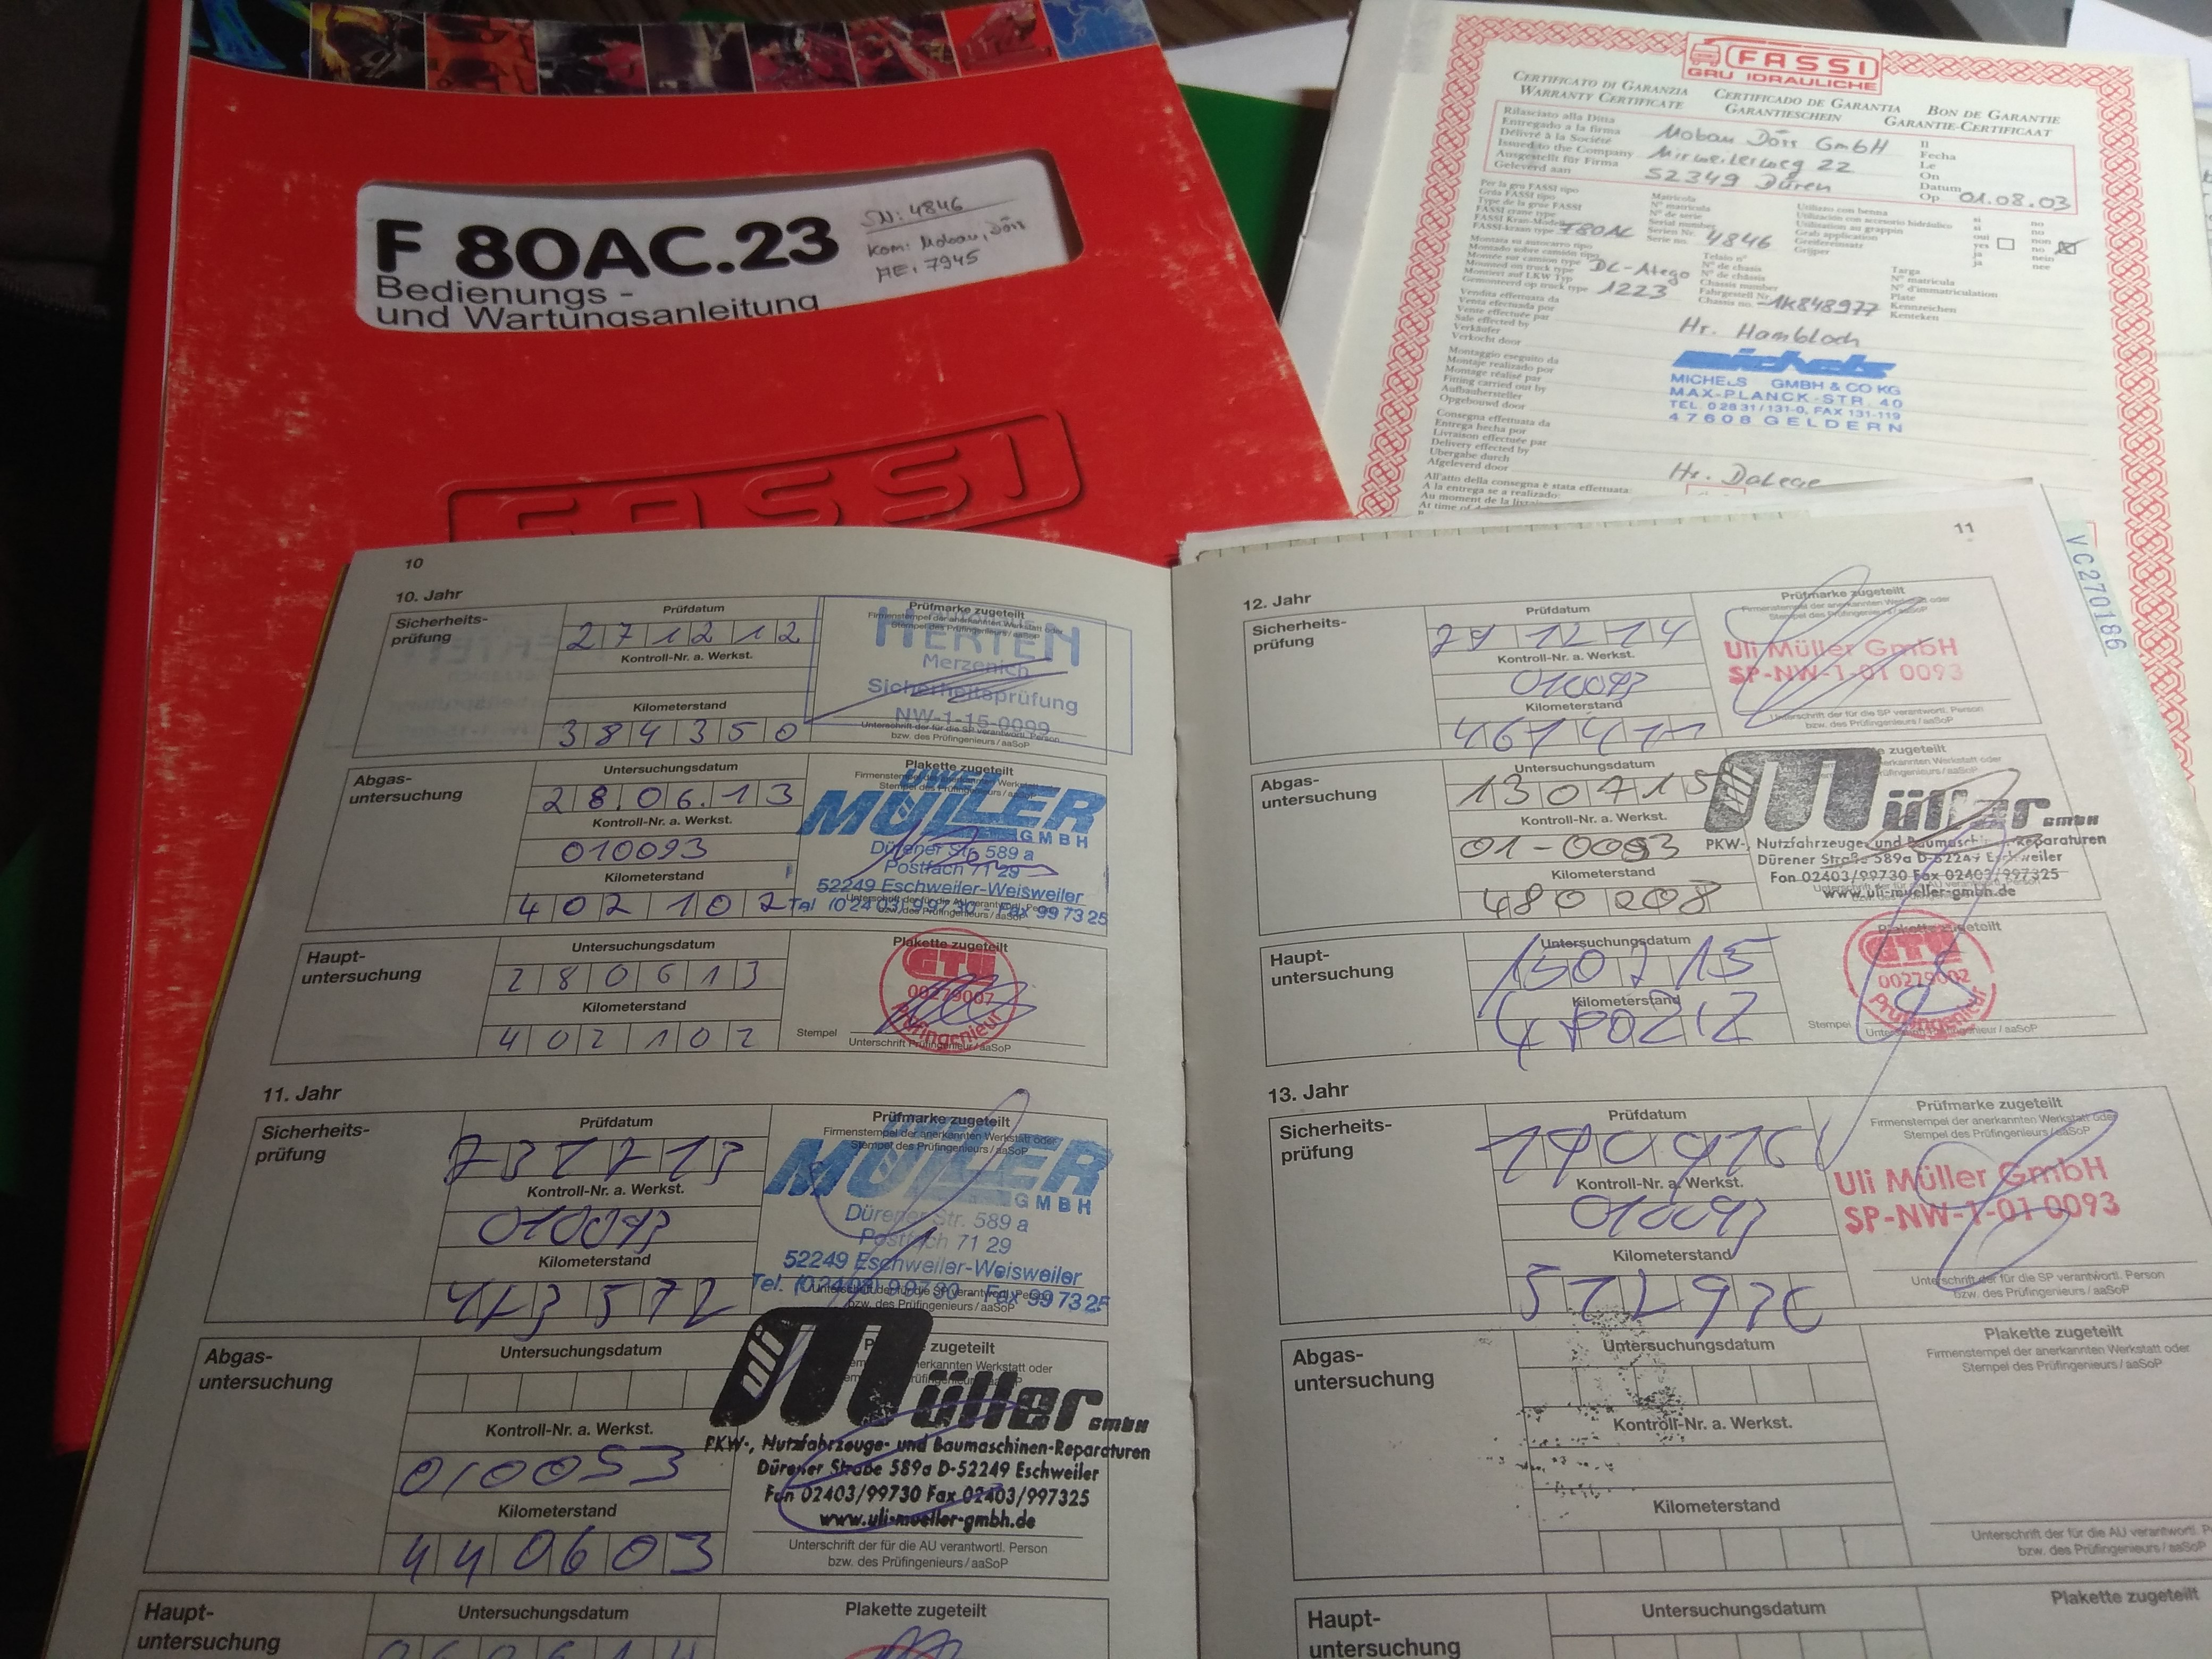 F 80AC.23
Bedienungs -
und Wartungsanleitung
SN: 4846
Kom: Mobau, Dörr
AE: 7945
FASSI
FASSI
GRU IDRAULICHE
CERTIFICATO DI GARANZIA
WARRANTY CERTIFICATE
CERTIFICADO DE GARANTIA
GARANTIESCHEIN
BON DE GARANTIE
GARANTIE-CERTIFICAAT
Rilasciato alla Ditta
Entregado a la firma
Délivré à la Société
Issued to the Company
Ausgestellt für Firma
Geleverd aan
Mobau Dörr GmbH
52349 Düren
Il
Fecha
Le
On
Datum
Op
01.08.03
Per la gru FASSI tipo
Grúa FASSI tipo
Type de la grue FASSI
FASSI crane type
FASSI Kran-Modell
FASSI-kraan type
F80AC
Matricola
N° matricula
N° de serie
Serial number
Serien Nr.
Serie no.
4846
Utilizzo con benna
Utilización con accesorio hidráulico
Utilisation au grappin
Grab application
Greifereinsatz
Grijper
si
si
oui
yes
ja
ja
no
no
non
no
nein
nee
Montata su autocarro tipo
Montado sobre camión tipo
Montée sur camion type
Mounted on truck type
Montiert auf LKW Typ
Gemonteerd op truck type
DC-Atego
1223
Telaio n°
N° de chasis
N° de châssis
Chassis number
Fahrgestell Nr.
Chassis no.
1K848977
Targa
N° matricula
N° d'immatriculation
Plate
Kennzeichen
Kenteken
Vendita effettuata da
Venta efectuada por
Vente effectuée par
Sale effected by
Verkäufer
Verkocht door
Hr. Hambloch
Montaggio eseguito da
Montaje realizado por
Montage réalisé par
Fitting carried out by
Aufbauhersteller
Opgebouwd door
michels
MICHELS GMBH & CO KG
MAX-PLANCK-STR. 40
TEL. 02831/131-0, FAX 131-119
47608 GELDERN
Consegna effettuata da
Entrega hecha por
Livraison effectuée par
Delivery effected by
Übergabe durch
Afgeleverd door
Hr.
All'atto della consegna è stata effettuata:
A la entrega se a realizado:
VC270186
10
10. Jahr
Sicherheits-
prüfung
Prüfdatum
271212
Kontroll-Nr. a. Werkst.
Kilometerstand
384350
Prüfmarke zugeteilt
HERTEN
Merzenich
Sicherheitsprüfung
NW-1-15-0099
Unterschrift der für die SP verantwortl. Person
bzw. des Prüfingenieurs / aaSoP
Abgas-
untersuchung
Untersuchungsdatum
28.06.13
Kontroll-Nr. a. Werkst.
010093
Kilometerstand
402102
Plakette zugeteilt
UWE
MÜLLER
GMBH
Dürener Str. 589 a
Postfach 71 29
52249 Eschweiler-Weisweiler
Tel. (02403) 99730 - Fax 99 73 25
Haupt-
untersuchung
Untersuchungsdatum
280613
Kilometerstand
402102
Plakette zugeteilt
GTÜ
00279002
Prüfingenieur
Stempel
Unterschrift Prüfingenieur / aaSoP
11. Jahr
Sicherheits-
prüfung
Prüfdatum
Kontroll-Nr. a. Werkst.
010093
Kilometerstand
Prüfmarke zugeteilt
Firmenstempel der anerkannten Werkstatt oder
Stempel des Prüfingenieurs / aaSoP
MÜLLER
GMBH
Dürener Str. 589 a
Postfach 71 29
52249 Eschweiler-Weisweiler
Tel. (02403) 99730 - Fax 99 73 25
bzw. des Prüfingenieurs / aaSoP
Abgas-
untersuchung
Untersuchungsdatum
Kontroll-Nr. a. Werkst.
010053
Kilometerstand
440603
zugeteilt
uli Müller GmbH
PKW-, Nutzfahrzeuge- und Baumaschinen-Reparaturen
Dürener Straße 589a D-52249 Eschweiler
Fon 02403/99730 Fax 02403/997325
www.uli-mueller-gmbh.de
Unterschrift der für die AU verantwortl. Person
bzw. des Prüfingenieurs / aaSoP
Haupt-
untersuchung
Untersuchungsdatum
Plakette zugeteilt
11
12. Jahr
Sicherheits-
prüfung
Prüfdatum
Kontroll-Nr. a. Werkst.
010093
Kilometerstand
Prüfmarke zugeteilt
Firmenstempel der anerkannten Werkstatt oder
Stempel des Prüfingenieurs / aaSoP
Uli Müller GmbH
SP-NW-1-01 0093
Unterschrift der für die SP verantwortl. Person
bzw. des Prüfingenieurs / aaSoP
Abgas-
untersuchung
Untersuchungsdatum
130715
Kontroll-Nr. a. Werkst.
01-0093
Kilometerstand
480208
zugeteilt
uli Müller GmbH
PKW-, Nutzfahrzeuge- und Baumaschinen-Reparaturen
Dürener Straße 589a D-52249 Eschweiler
Fon 02403/99730 Fax 02403/997325
www.uli-mueller-gmbh.de
Haupt-
untersuchung
Untersuchungsdatum
150715
Kilometerstand
480212
Plakette zugeteilt
GTÜ
00279002
Prüfingenieur
Stempel
Unterschrift Prüfingenieur / aaSoP
13. Jahr
Sicherheits-
prüfung
Prüfdatum
Kontroll-Nr. a. Werkst.
010093
Kilometerstand
Prüfmarke zugeteilt
Firmenstempel der anerkannten Werkstatt oder
Stempel des Prüfingenieurs / aaSoP
Uli Müller GmbH
SP-NW-1-01 0093
Unterschrift der für die SP verantwortl. Person
bzw. des Prüfingenieurs / aaSoP
Abgas-
untersuchung
Untersuchungsdatum
Kontroll-Nr. a. Werkst.
Kilometerstand
Plakette zugeteilt
Firmenstempel der anerkannten Werkstatt oder
Stempel des Prüfingenieurs / aaSoP
Unterschrift der für die AU verantwortl. P
bzw. des Prüfingenieurs / aaSoP
Haupt-
untersuchung
Untersuchungsdatum
Plakette zugeteilt